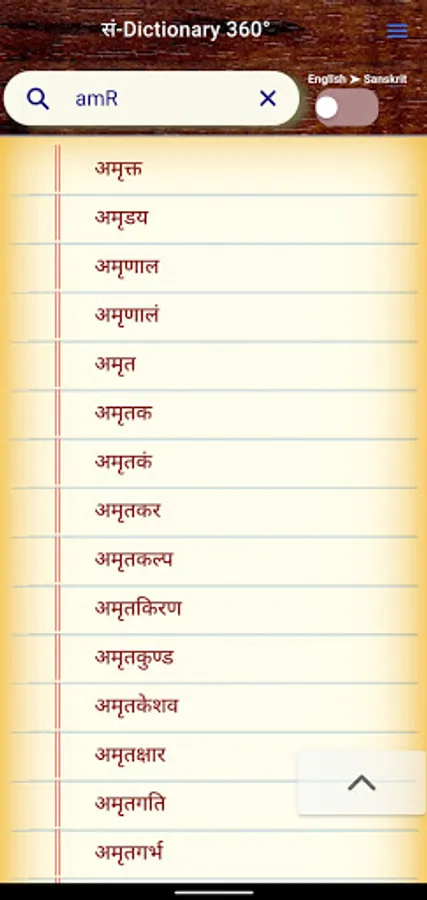 सं-Dictionary 360°
English ➤ Sanskrit
amR
अमृक्त
अमृडय
अमृणाल
अमृणालं
अमृत
अमृतक
अमृतकं
अमृतकर
अमृतकल्प
अमृतकिरण
अमृतकुण्ड
अमृतकेशव
अमृतक्षार
अमृतगति
अमृतगर्भ